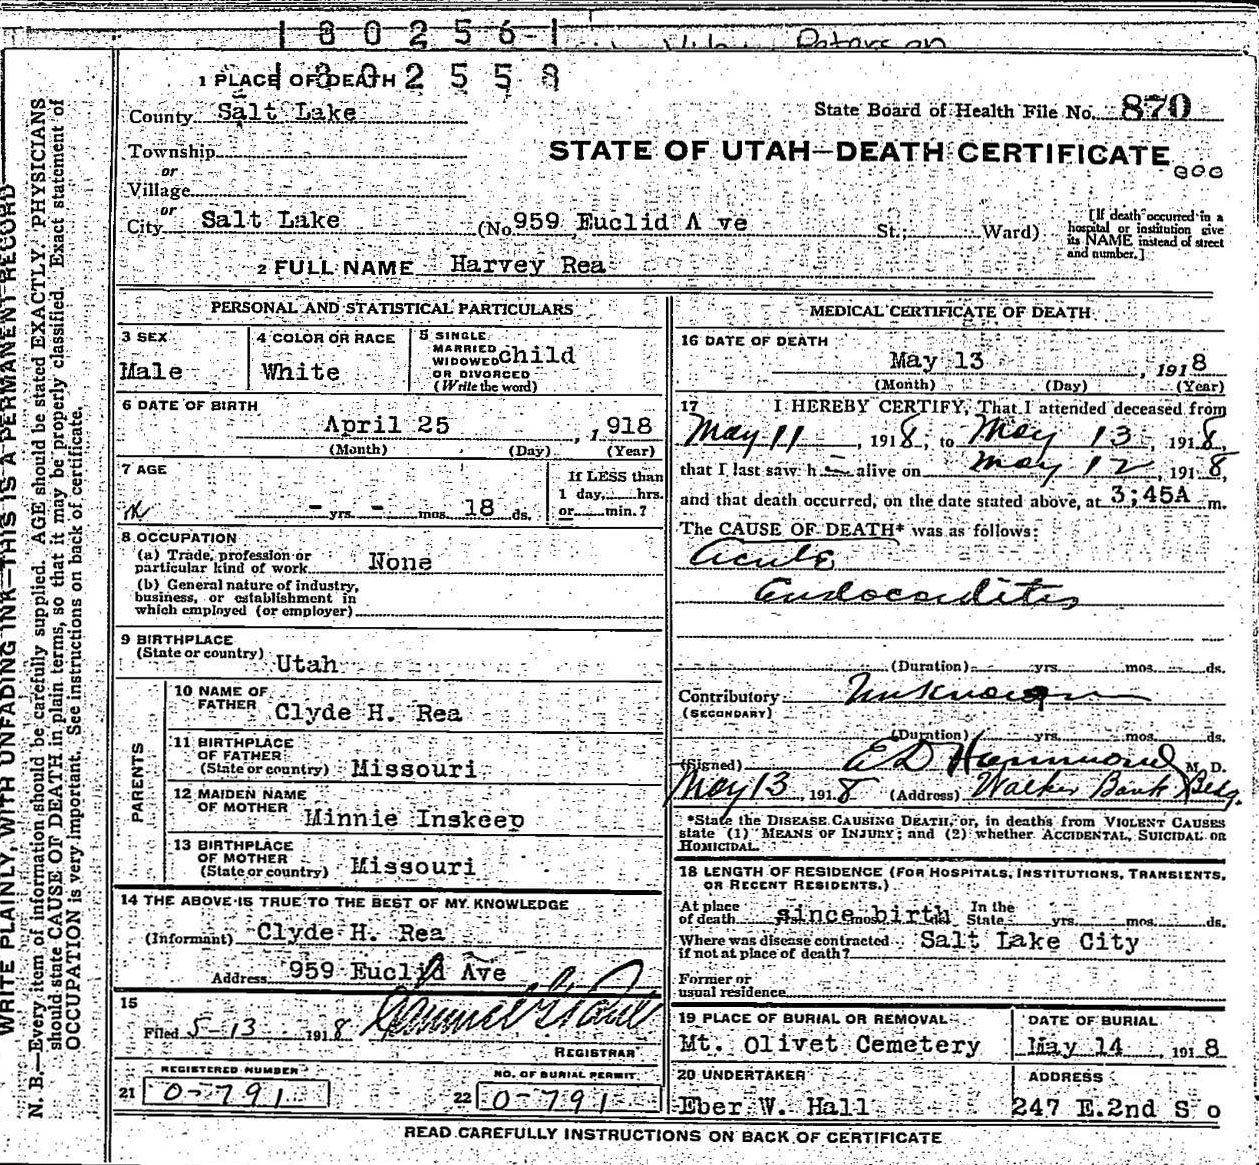 1 8 0 2 5 6-1
1 PLACE OF DEATH 1 8 0 2 5 5 8
County Salt Lake
State Board of Health File No. 870
Township
STATE OF UTAH—DEATH CERTIFICATE
or
Village
or
City Salt Lake (No. 959 Euclid A ve St.; Ward)
[If death occurred in a hospital or institution give its NAME instead of street and number.]
2 FULL NAME Harvey Rea
PERSONAL AND STATISTICAL PARTICULARS
3 SEX
Male
4 COLOR OR RACE
White
5 SINGLE
MARRIED
WIDOWED child
OR DIVORCED
(Write the word)
6 DATE OF BIRTH
April 25 , 1918
(Month) (Day) (Year)
7 AGE
- yrs. - mos. 18 ds.
If LESS than
1 day, hrs.
or min.?
8 OCCUPATION
(a) Trade, profession or
particular kind of work None
(b) General nature of industry,
business, or establishment in
which employed (or employer)
9 BIRTHPLACE
(State or country) Utah
PARENTS
10 NAME OF
FATHER Clyde H. Rea
11 BIRTHPLACE
OF FATHER
(State or country) Missouri
12 MAIDEN NAME
OF MOTHER Minnie Inskeep
13 BIRTHPLACE
OF MOTHER
(State or country) Missouri
14 THE ABOVE IS TRUE TO THE BEST OF MY KNOWLEDGE
(Informant) Clyde H. Rea
Address 959 Euclid Ave
15
Filed 5-13 1918
REGISTRAR
REGISTERED NUMBER
21 0-791
NO. OF BURIAL PERMIT
22 0-791
MEDICAL CERTIFICATE OF DEATH
16 DATE OF DEATH
May 13 , 1918
(Month) (Day) (Year)
17 I HEREBY CERTIFY, That I attended deceased from
May 11 , 1918, to May 13 , 1918,
that I last saw h alive on May 12 , 1918,
and that death occurred, on the date stated above, at 3;45A m.
The CAUSE OF DEATH* was as follows:
Acute
Endocarditis
(Duration) yrs. mos. ds.
Contributory Unknown
(SECONDARY)
(Duration) yrs. mos. ds.
(Signed) E D Hammond M. D.
May 13 , 1918 (Address) Walker Bank Bldg.
*State the DISEASE CAUSING DEATH, or, in deaths from VIOLENT CAUSES
state (1) MEANS OF INJURY; and (2) whether ACCIDENTAL, SUICIDAL OR
HOMICIDAL.
18 LENGTH OF RESIDENCE (FOR HOSPITALS, INSTITUTIONS, TRANSIENTS,
OR RECENT RESIDENTS.)
At place In the
of death yrs. since mos. birth ds. State yrs. mos. ds.
Where was disease contracted Salt Lake City
if not at place of death?
Former or
usual residence
19 PLACE OF BURIAL OR REMOVAL
Mt. Olivet Cemetery
DATE OF BURIAL
May 14 , 1918
20 UNDERTAKER
Eber W. Hall
ADDRESS
247 E.2nd S o
READ CAREFULLY INSTRUCTIONS ON BACK OF CERTIFICATE
WRITE PLAINLY, WITH UNFADING INK—THIS IS A PERMANENT RECORD
N. B.—Every item of information should be carefully supplied. AGE should be stated EXACTLY. PHYSICIANS
should state CAUSE OF DEATH in plain terms, so that it may be properly classified. Exact statement of
OCCUPATION is very important. See instructions on back of certificate.